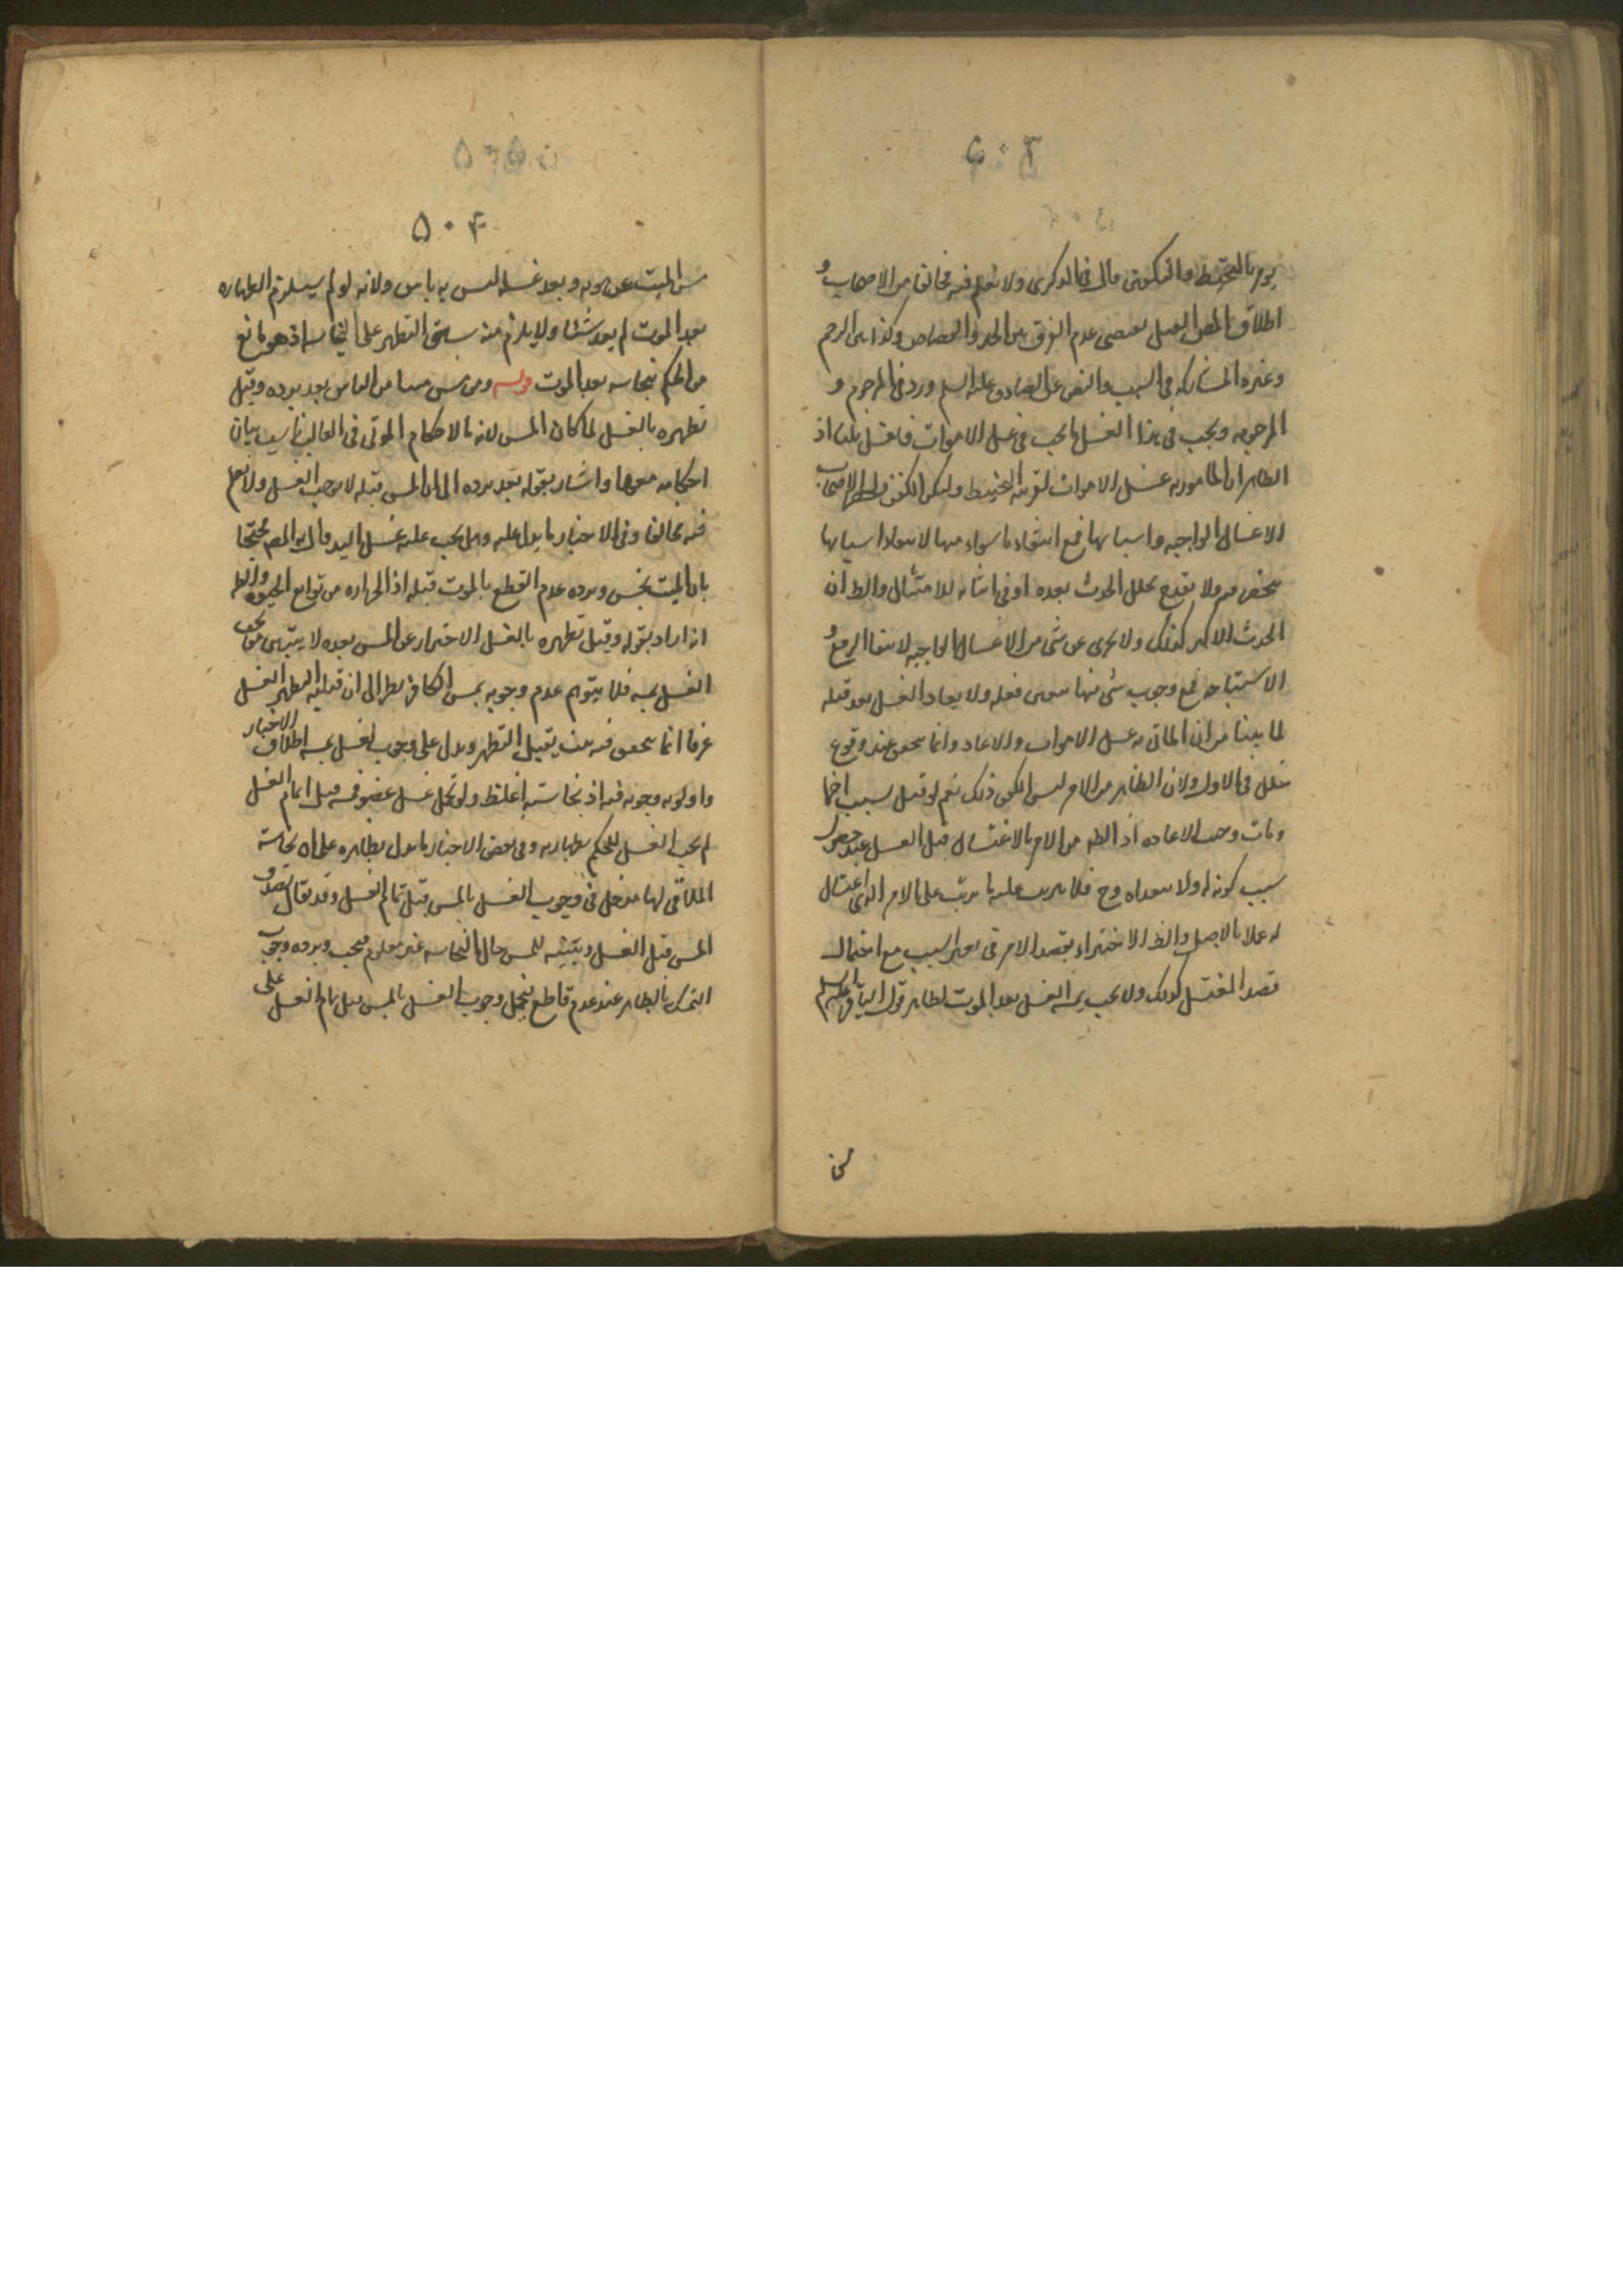 ٥٠٣
يومر بالتحنيط والتكفين قال فى الذكرى ولا نعلم فيه مخالفا من الاصحاب و
اطلاق القتل يقتضى عدم الفرق بين الحد والقصاص وكذا بين الرجم
وغيره للمشاركة فى السبب والنص عن الصادق عليه السلم ورد فى المرجوم و
المرجومه ويجب فى هذا الغسل ما يجب فى غسل الاموات فيغتسل ثلثا اذ
الظاهر ان المامور به غسل الاموات لقرينة التحنيط ولبس الكفن الاصحاب
الاغسال الواجبه واسبابها مع انتفاء ما سواه منها لانتفاء اسبابها
ولا يقدح تخلل الحدث بعده او فى اثنائه للامتثال والظ ان
الحدث الاكبر كذلك ولا يجزى عن شى من الاغسال الواجبه لانتفاء الرفع و
الاستباحه فمع وجوب شى منها تعين فعله ولا يعاد الغسل بعد قتله
لما بينا من ان الماتى به غسل الاموات والاعاده انما تتحقق عند وقوع
خلل فى الاول ولان الظاهر من الامر ليس الا ذلك نعم لو قتل بسبب اخر
ومات وجبت الاعاده اذ الظ من الامر بالاغتسال قبل القتل عند حضور
سبب كونه له ولا يتعداه وح فلا يترتب عليه ما يترتب على الامر
له عملا بالاصل والظ الاجتزاء بقصد الامر فى تعين السبب مع احتمال
قصد المغتسل كذلك ولا يجب بمسه الغسل بعد الموت لظاهر قول الباقر عليه السلم
مس
٥٠٤
مس الميت عند موته وبعد غسله ليس به باس ولانه لو لم يستلزم الطهاره
بعد الموت لم يفد شيئا ولا يلزم منه سبق التطهر على النجاسه اذ هو مانع
من الحكم بنجاسته بعد الموت قوله ومن مس ميتا من الناس بعد برده وقبل
تطهره بالغسل لما كان المس لازما لاحكام الموتى فى الغالب ناسب بيان
احكامه معها واشار بقوله بعد برده الى ان المس قبله لا يوجب الغسل ولا نعلم
فيه مخالفا وفى الاخبار ما يدل عليه وهل يجب عليه غسل اليد قال به المص محتجا
بان الميت نجس ويرده عدم القطع بالموت قبله اذ الحراره من توابع الحيوه والظ
انه اراد بقوله وقبل تطهره بالغسل الاحتراز عن المس بعده لا
الغسل بمسه فلا يتوهم عدم وجوبه بمس الكافر نظرا الى ان قبليه التطهر بالغسل
عرفا انما تتحقق فيمن يقبل التطهر ويدل على وجوب الغسل بمسه اطلاق الاخبار
واولويه وجوبه فيه اذ نجاسته اغلظ ولو كمل غسل عضو فمسه قبل اتمام الغسل
لم يجب الغسل للحكم بطهارته وفى بعض الاخبار ما يدل بظاهره على ان نجاسة
الملاقى لها مدخل فى وجوب الغسل بالمس قبل تمام الغسل وقد يقال بصدق
المس قبل الغسل وتبعيته للمس حال النجاسه غير معلوم فيجب ويرده وجوب
التمسك بالظاهر عند عدم قاطع فيحمل وجوب الغسل بالمس قبل تمام الغسل على